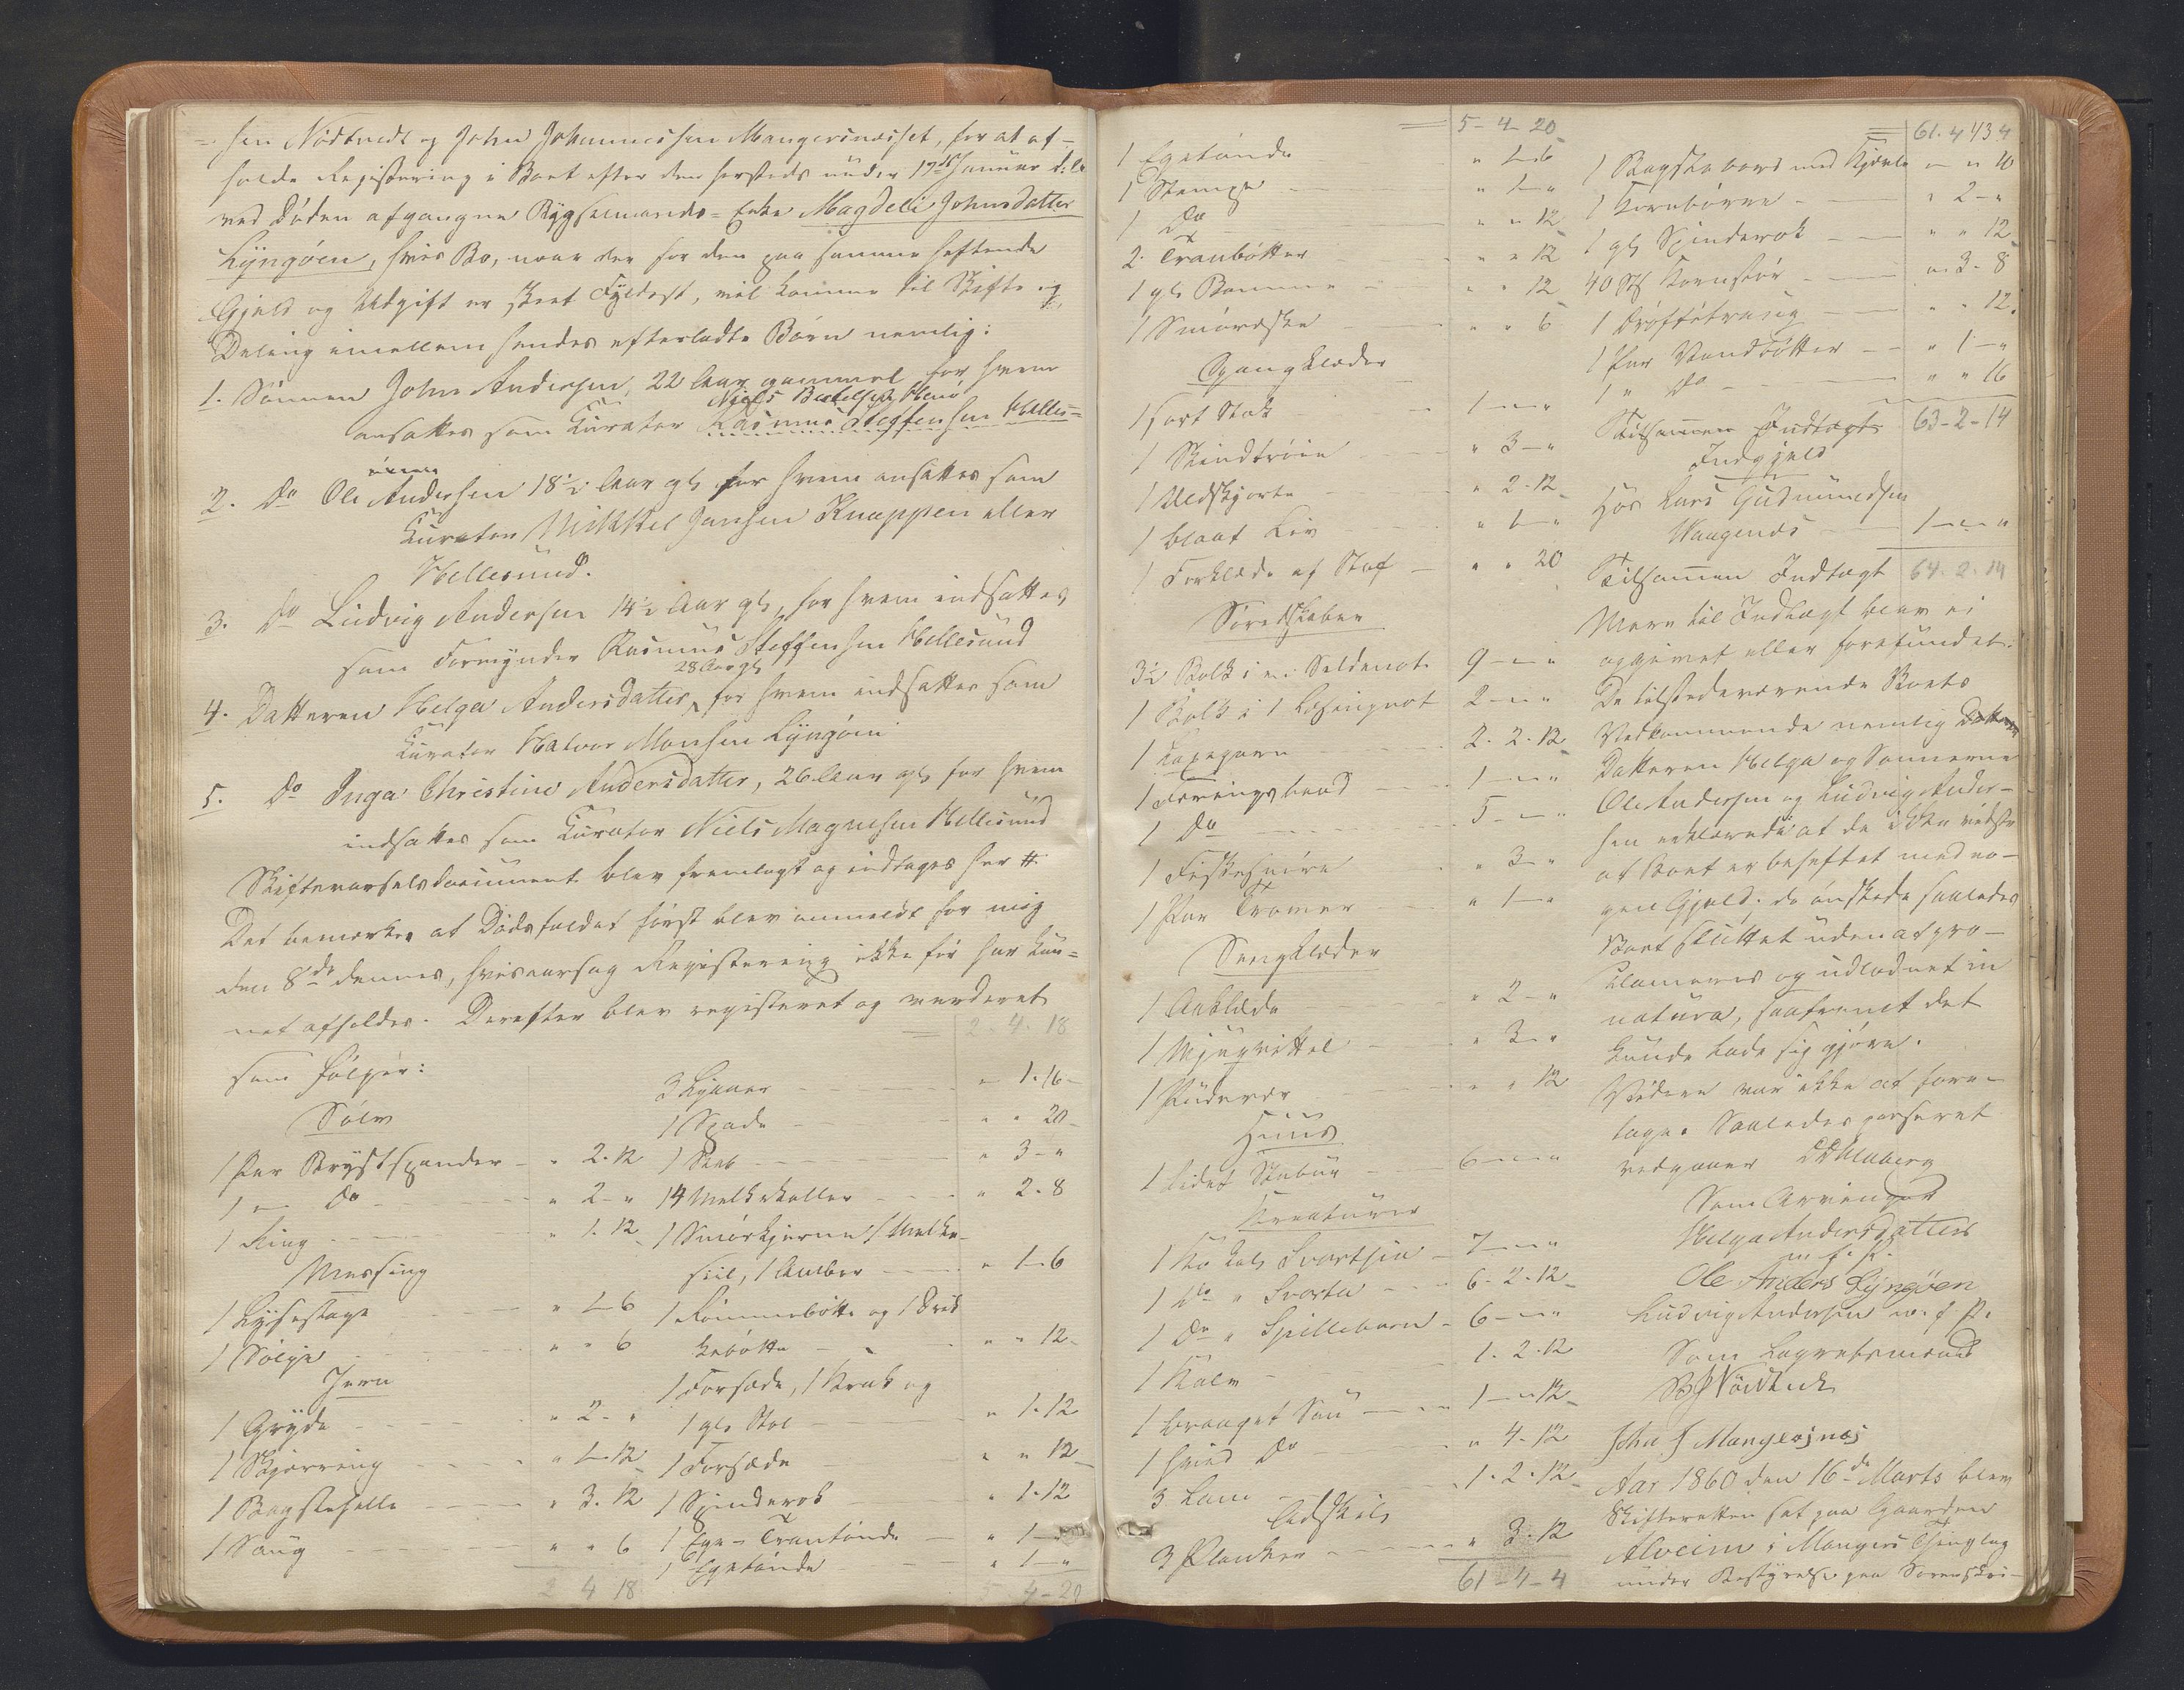 sen Nödtvedt og John Johannessen Mangersnæsset, for at af-
holde Registrering i Boet efter den hersteds under 17de Januar d.A.
ved Döden afgangne Bygselmands-Enke Magdeli Johnsdatter
Lyngöen, hvis Bo, naar der for den paa samme heftende
Gjæld og Udgift er skeet Fyldest, vil komme til Skifte og
Deling imellem hendes efterladte Börn nemlig:
1. Sönnen John Andersen, 22 Aar gammel for hvem
Niels Bertelsen
ansattes som Kurator Rasmus Steffensen Helles=
2. Do Ole Andersen 18½ Aar gl. for hvem ansattes som
Kurator Mikkel Jansen Knappen eller
Hellesund.
3. Do Ludvig Andersen 14½ Aar gl., for hvem indsattes
som Formynder Rasmus Steffensen Hellesund
28 Aar gl.
4. Datteren Helga Andersdatter, for hvem indsattes som
Kurator Halvor Monsen Lyngöen
5. Do Inga Christine Andersdatter, 26 Aar gl. for hvem
indsattes som Kurator Niels Magnesen Hellesund
Skiftevarselsdocument blev fremlagt og indtages her #.
Det bemærkes at Dödsfaldet först blev anmeldt for mig
den 8de dennes, hvisaarsag Registrering ikke för har kun=
net afholdes. Derefter blev registeret og vurderet
som fölger:
Sölv
1 Par Brystspænder - " 2. 12
1 " Do " 2 - "
1 Ring " 1. 12
Messing
1 Lysestage " 1 - 6
1 Sölje " " 6
Jern
1 Gryde " 2 - "
1 Skjærring " 1 - 12
1 Bagstehelle " 3. 12
1 Saug " " 6
2 4 18
2. 4. 18
3 Lyaaer " 1. 16
1 Spade " " 20
1 Skab " 3 - "
14 Melkekoller " 2. 8
1 Smörkjerne, 1 Melke-
siil, 1 Amber " 1 - 6
1 Römmebötte og 1 Drik-
kebötte " " 12
1 Forsæde, 1 Krak og
1 gl. Stol " 1. 12
1 Forsæde " " 12
1 Spinderok " 1. 12
1 Ege-Trantönde " 1 - "
1 Egetönde " 1 - "
5 4 - 20
5 - 4 - 20
1 Egetönde " 1 - 6
1 Stampe " 1 - "
1 Do " " 12
2 Tranbötter " " 12
1 gl. Bomme " " 12
1 Smöræske " " 6
Gangklæder
1 sort Stak 1 - " - "
1 Skindtröie " 3 - "
1 Uldskjorte " 2. 12
1 blaat Liv " 1 - "
1 Forklæde af Stof " " 20
Söredskaber
3½ Bolk i en Sildenot 9 - " - "
1 Bolk i 1 Låsingnot 2 - " - "
1 Kapegarn 2. 2. 12
1 Færingsbaad 1 - " - "
1 Do 5 - " - "
1 Fiskesnöre " 3 - "
1 Par Tromer " 1 - "
Sengklæder
1 Aaklæde " 2 - "
1 " 3 - "
1 Pudevær " " 12
Huus
1 lidet Stabuur 6 - " - "
Kreaturer
1 Ko kal. Svartsia 7 - " - "
1 Do " Svarta 6. 2. 12
1 Do " Spilleborn 6 - " - "
1 Kalv 1. 2. 12
1 braaget Sau 1 - " 12
1 hvid Do " 4. 12
3 Lam 1. 2. 12
Adskil.
3 Planker " 3. 12
61 - 4 - 4
61. 4 4
1 Bagstebord med Kjævle " " 10
1 Kornbörre " 2 - "
1 gl. Spinderok " " 12
40 St. Kornstör " 3. 8
1 Dröftetraug " " 12
1 Par Vandbötter " 1 - "
1 " Do " " 16
Tilsammen Indtægt 63 - 2 - 14
Indgjæld
Hos Lars Gudmundsen
Vaagenes 1 - " - "
Tilsammen Indtægt 64. 2. 14
Mere til Indtægt blev ei
opgivet eller forefundet.
De tilstedeværende Boets
Vedkommende nemlig
Datteren Helga og Sönnerne
Ole Andersen og Ludvig Ander-
sen erklærede at de ikke vidste
at Boet er beheftet med no-
gen Gjæld. de önskede saaledes
Boet sluttet uden at pro-
clameres og udlodnet in
natura, saafremt det
kunde lade sig gjöre.
Videre var ikke at fore-
tage. Saaledes passeret
vedgaaer
Som Arvinger
Helga Andersdatter
m. f. P.
Ole Anders Lyngöen
Ludvig Andersen m. f. P.
Som Laugrettemænd
Nödtvedt
John J Mangersnæs
Aar 1860 den 16de Marts blev
Skifteretten sat paa Gaarden
Alveim i Mangers Thinglag
under Bestyrelse paa Sorenskri-